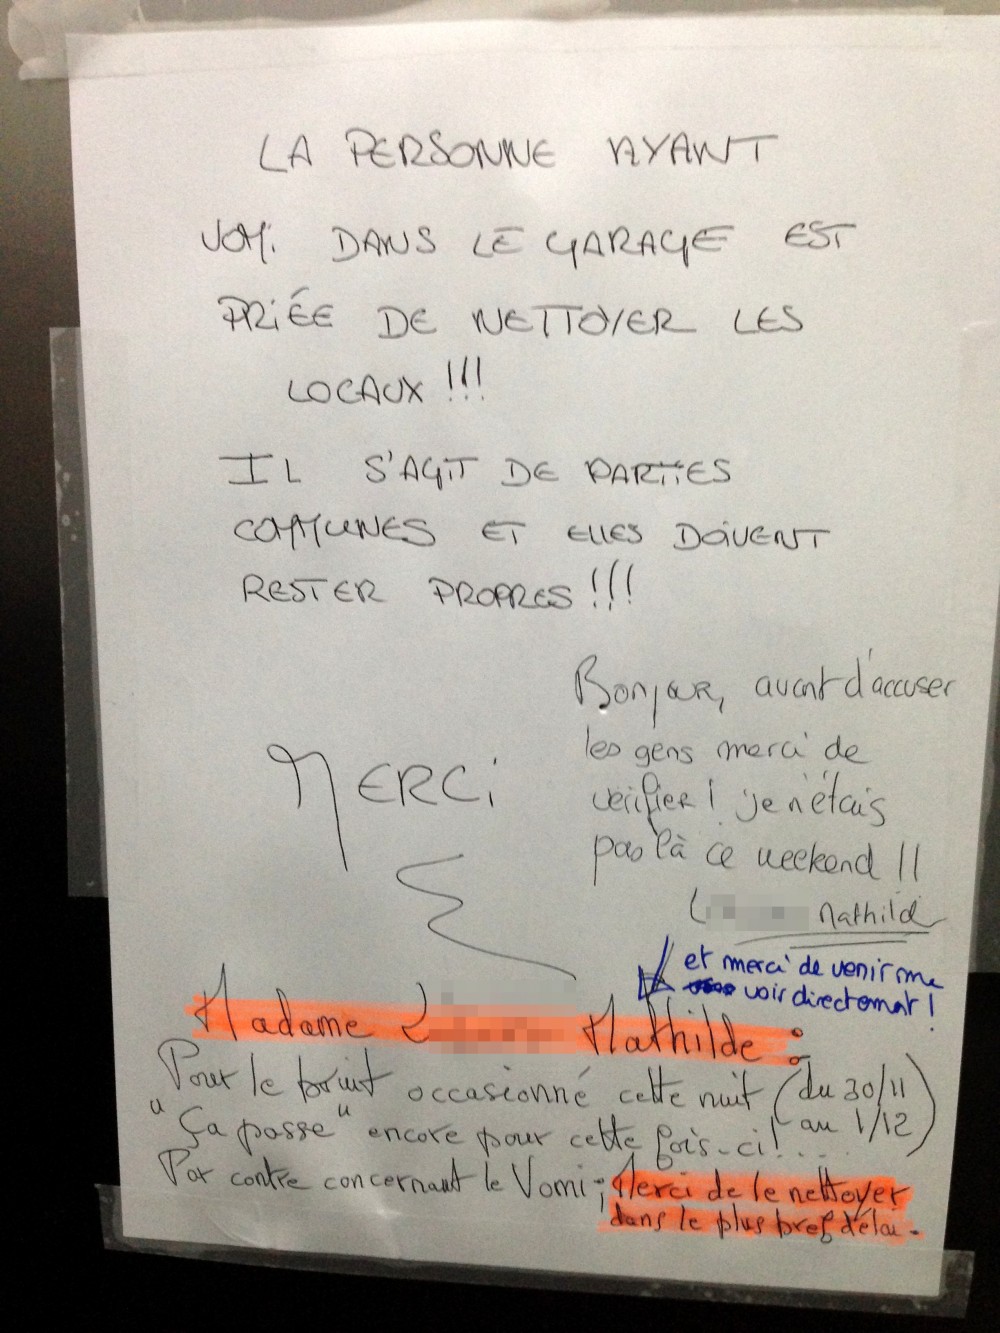 LA PERSONNE AYANT
VOMI DANS LE GARAGE EST
PRiÉE DE NETTOYER LES
LOCAUX !!!
IL S'AGIT DE PARTIES
COMMUNES ET ELLES DOIVENT
RESTER PROPRES !!!
MERCi
Bonjour, avant d'accuser
les gens merci de
vérifier ! je n'étais
pas là ce weekend !!
L Mathilde
et merci de venir me
voir directement !
Madame L Mathilde :
Pour le bruit occasionné cette nuit (du 30/11
au 1/12)
"Ça passe" encore pour cette fois-ci!....
Par contre concernant le Vomi ; Merci de le nettoyer
dans le plus bref délai.